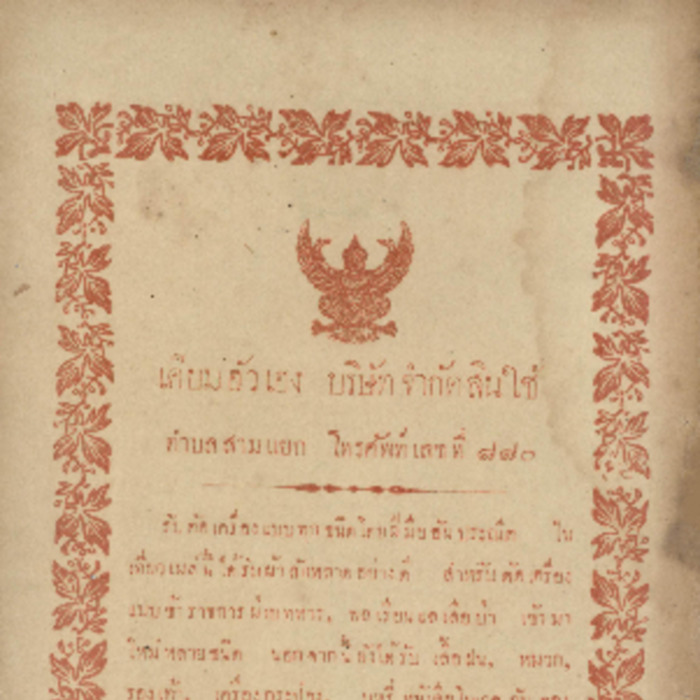 เคียมฮั่วเฮง บริษัท จำกัดสินใช้
ตำบลสามแยก โทรศัพท์เลขที่ ๘๘๓
รับตัดเครื่องแบบทุกชนิดโดยฝีมืออันประณีต ใน
เที่ยวเมล์นี้ได้รับผ้าสักหลาดอย่างดี สำหรับตัดเครื่อง
แบบข้าราชการฝ่ายทหาร, พลเรือนและเสือป่า เข้ามา
ใหม่หลายชนิด นอกจากนี้ยังได้รับ เสื้อฝน, หมวก,
รองเท้า, เครื่องกระป๋อง,